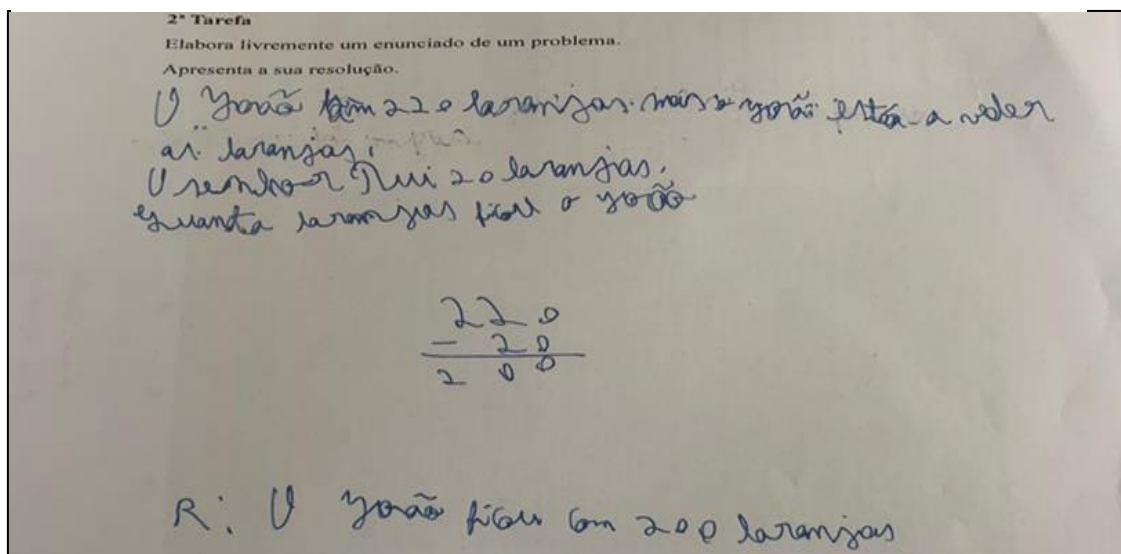 2ª Tarefa
Elabora livremente um enunciado de um problema.
Apresenta a sua resolução.
O João tem 220 laranjas. mais o João está a veder
as laranjas.
O senhor Rui 20 laranjas.
Quanta laranjas ficou o João
220
- 20
200
R: O João ficou com 200 laranjas